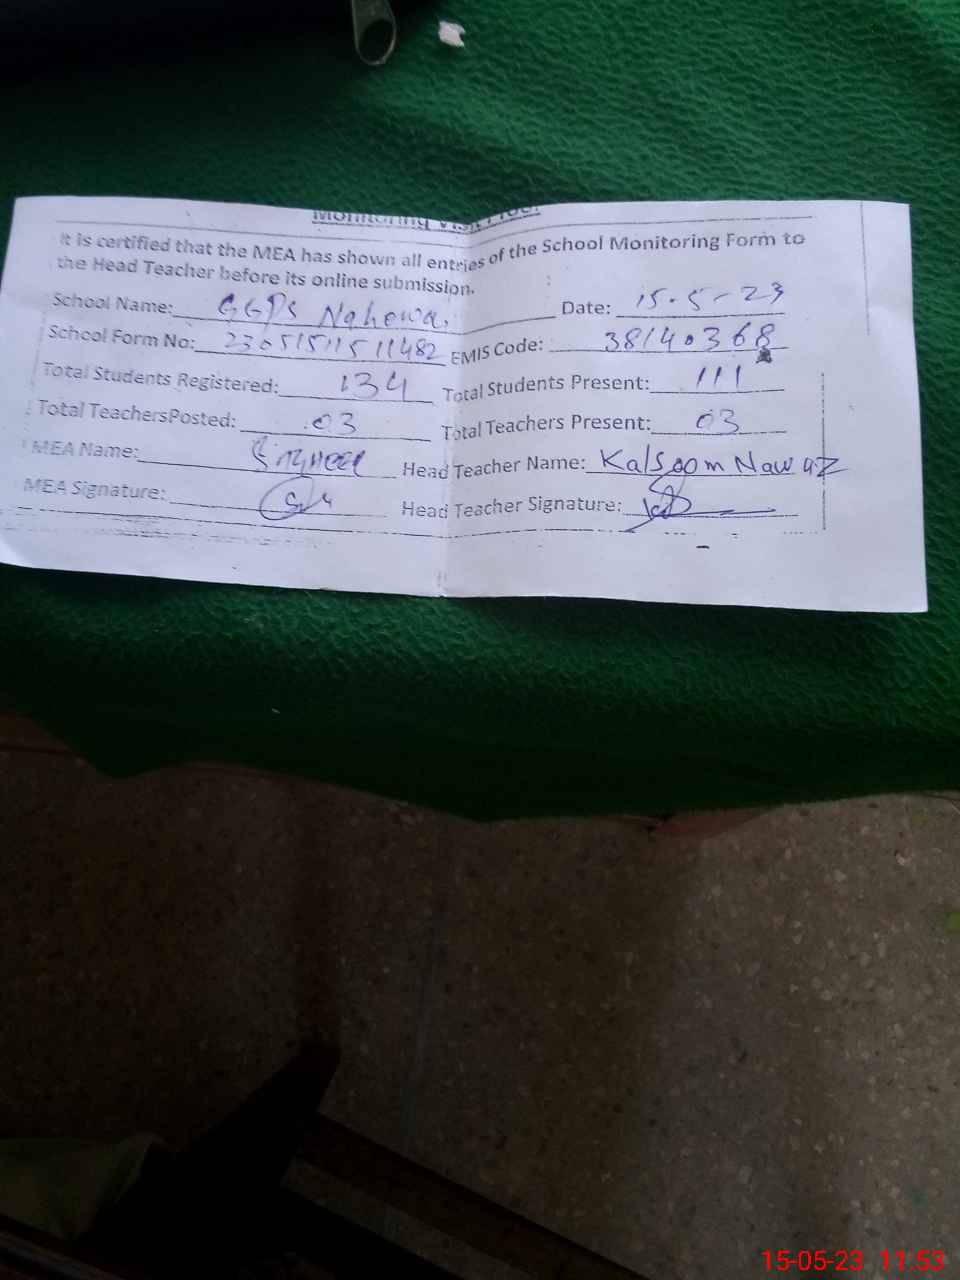 Monitoring Visit Proof
It is certified that the MEA has shown all entries of the School Monitoring Form to
the Head Teacher before its online submission.
School Name: GGPS Nahowa. Date: 15.5-23
School Form No: 23051511511482 EMIS Code: 38140368
Total Students Registered: 134 Total Students Present: 111
Total TeachersPosted: 03 Total Teachers Present: 03
MEA Name: Head Teacher Name: Kalsoom Nawaz
MEA Signature: Head Teacher Signature:
15-05-23 11:53